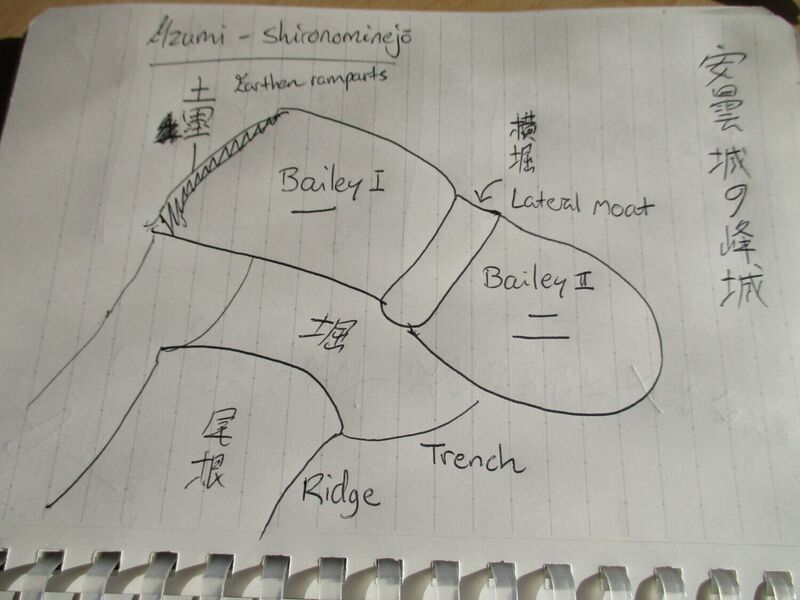 Azumi - Shironominejō
土塁
Earthen ramparts
安曇城の峰城
横堀
Lateral moat
Bailey I
一
Bailey II
二
堀
尾根
Trench
Ridge